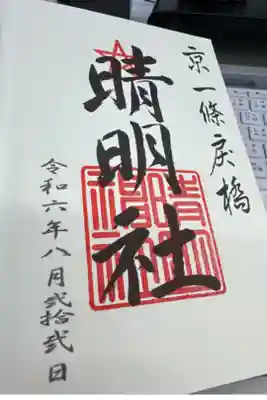 京一條戻橋
晴明社
令和六年八月弐拾弐日